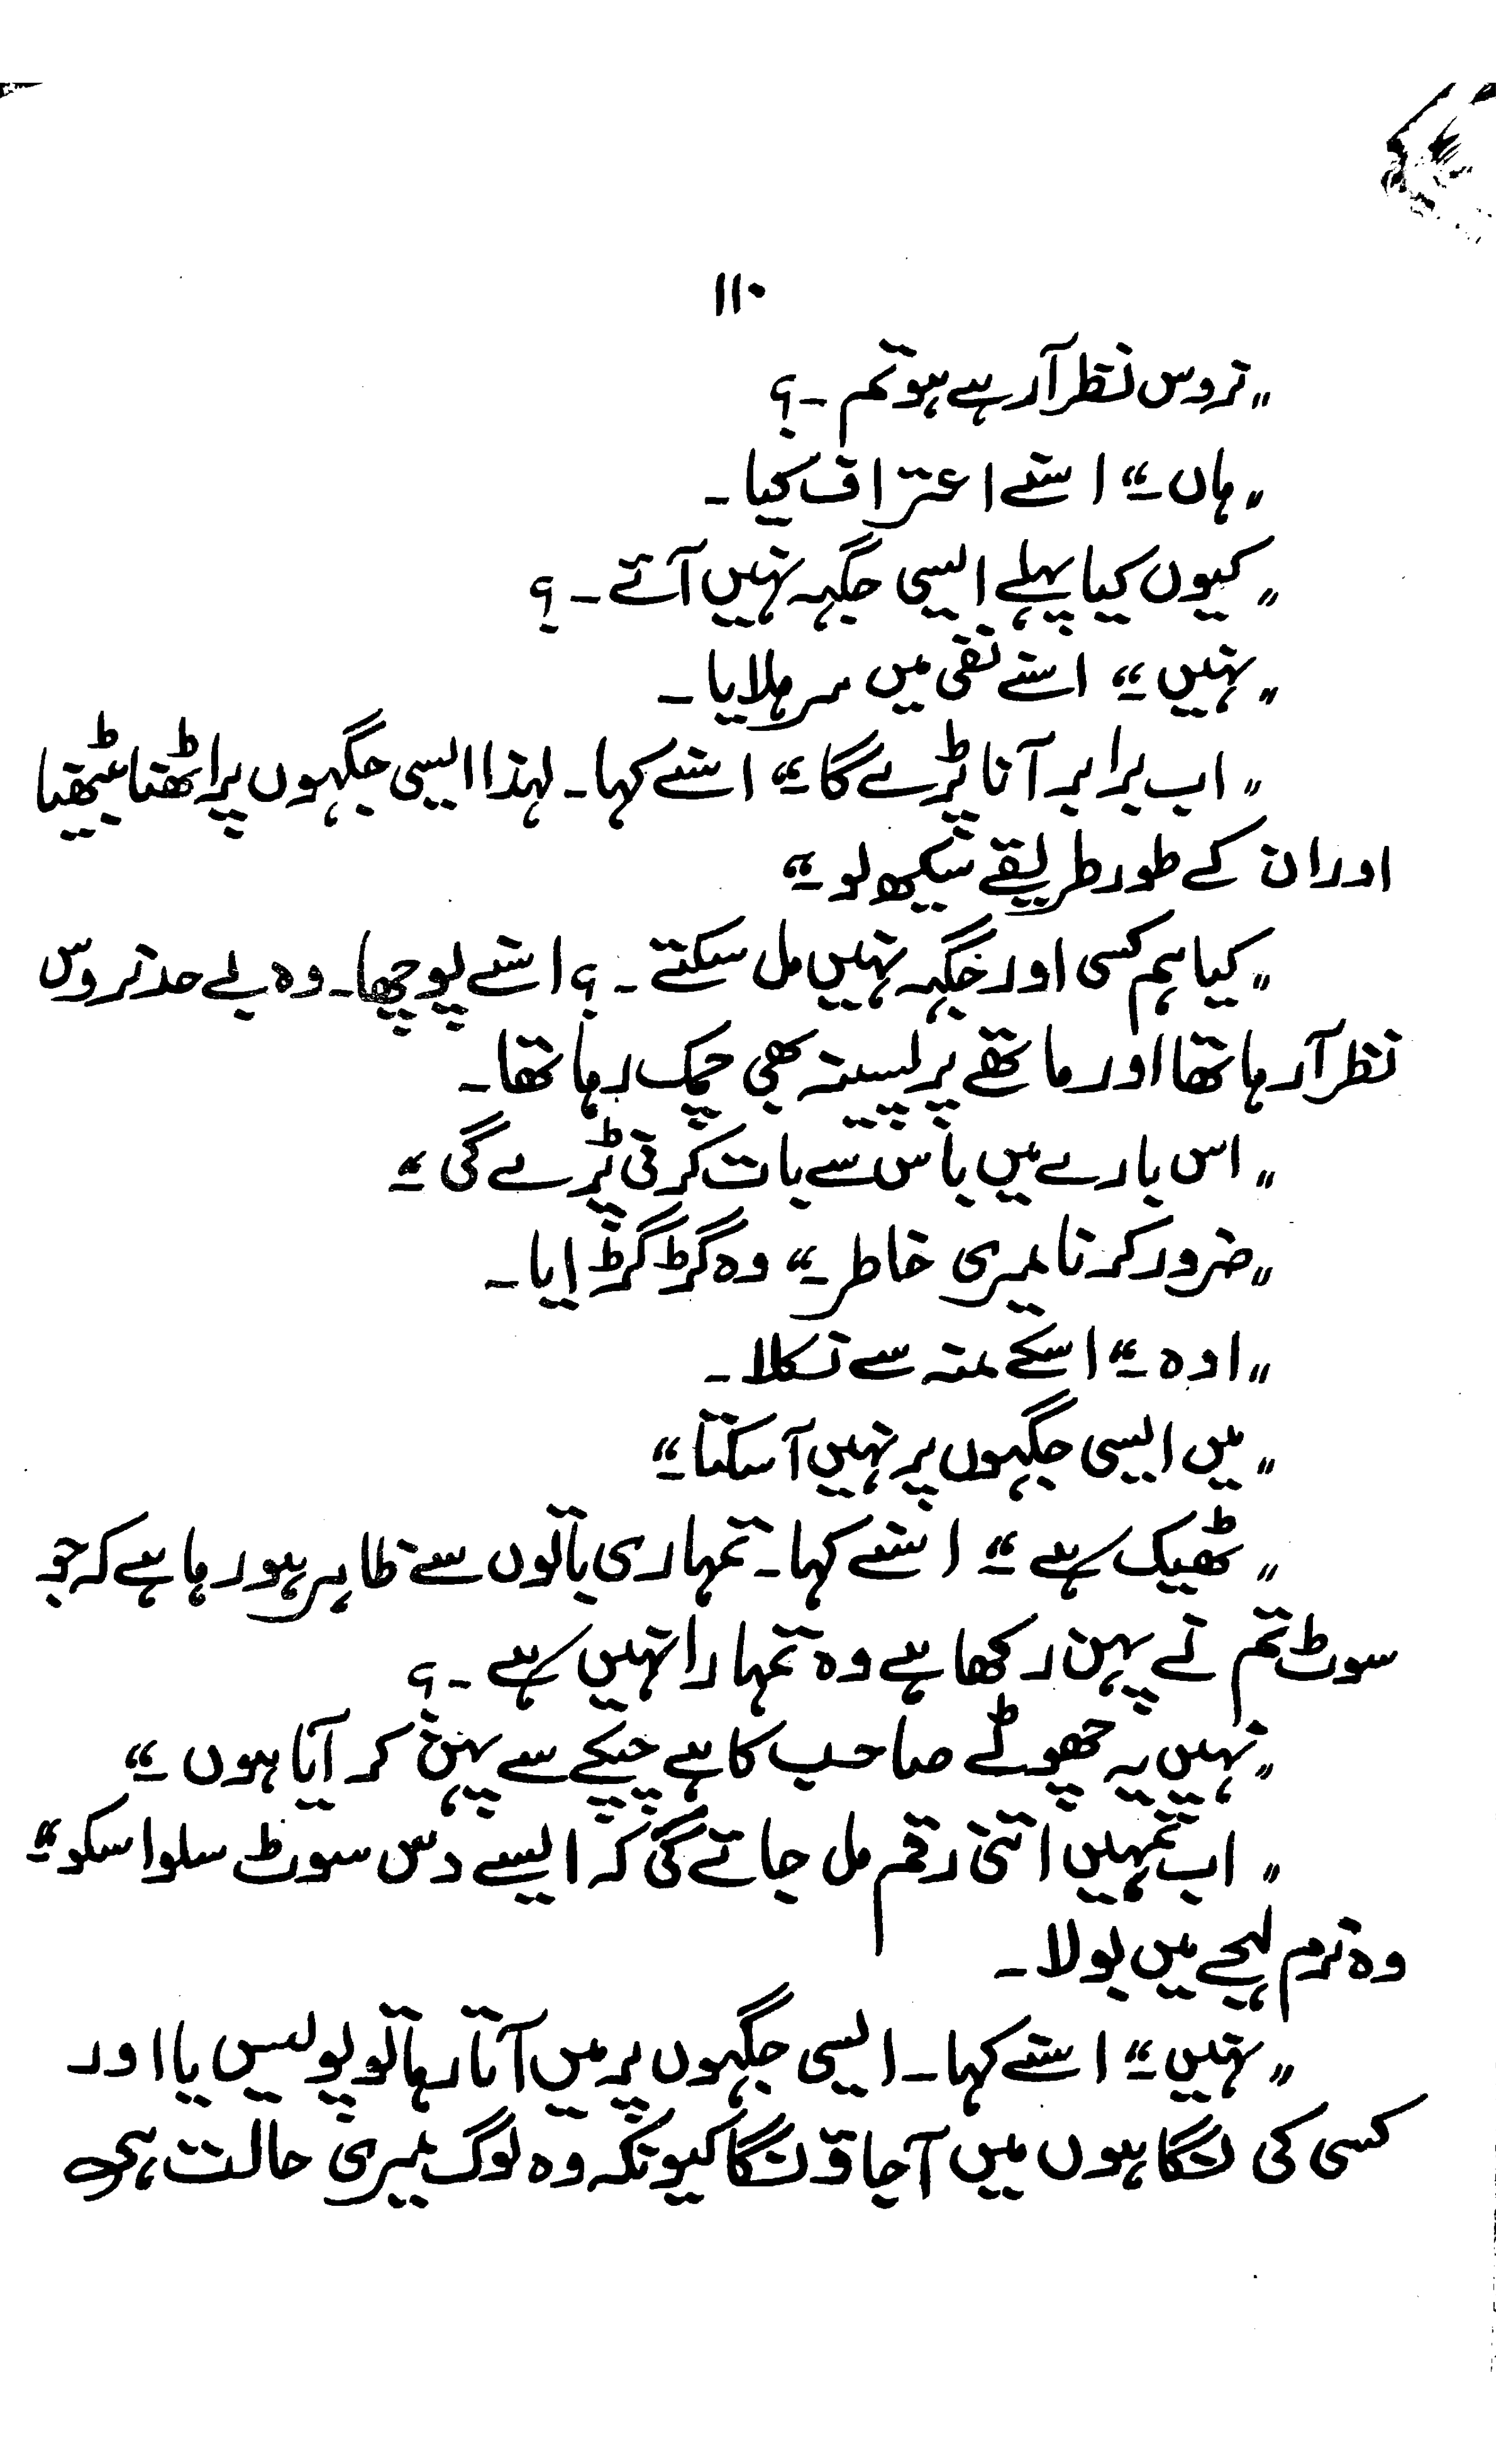 ۱۱۰
"نروس نظر آ رہے ہو تم ۔؟
"ہاں ۔" اسنے اعتراف کیا ۔
"کیوں کیا پہلے ایسی جگہہ نہیں آتے ۔؟
"نہیں ۔" اسنے نفی میں سر ہلایا ۔
"اب برابر آنا پڑے گا ۔" اسنے کہا ۔ لہذا ایسی جگہوں پر اٹھنا بیٹھنا
اور ان کے طور طریقے سیکھ لو ۔"
"کیا ہم کسی اور جگہہ نہیں مل سکتے ۔؟ اسنے پوچھا ۔ وہ بے حد نروس
نظر آ رہا تھا اور ماتھے پر پسینہ بھی چمک رہا تھا ۔
"اس بارے میں باس سے بات کرنی پڑے گی ۔"
"ضرور کرنا میری خاطر ۔" وہ گڑ گڑ ایا ۔
"اوہ ۔" اسکے منہ سے نکلا ۔
"میں ایسی جگہوں پر نہیں آ سکتا ۔"
"ٹھیک ہے ۔" اسنے کہا ۔ تمہاری باتوں سے ظاہر ہو رہا ہے کہ جو
سوٹ تم نے پہن رکھا ہے وہ تمہارا نہیں ہے ۔؟
"نہیں یہ چھوٹے صاحب کا ہے چپکے سے پہن کر آیا ہوں ۔"
"اب تمہیں اتنی رقم مل جائے گی کہ ایسے دس سوٹ سلوا سکو ۔"
وہ نرم لہجے میں بولا ۔
"نہیں ۔" اسنے کہا ۔ ایسی جگہوں پر میں آتا رہا تو پولیس یا اور
کسی کی نگاہوں میں آجاؤنگا کیونکہ وہ لوگ میری حالت